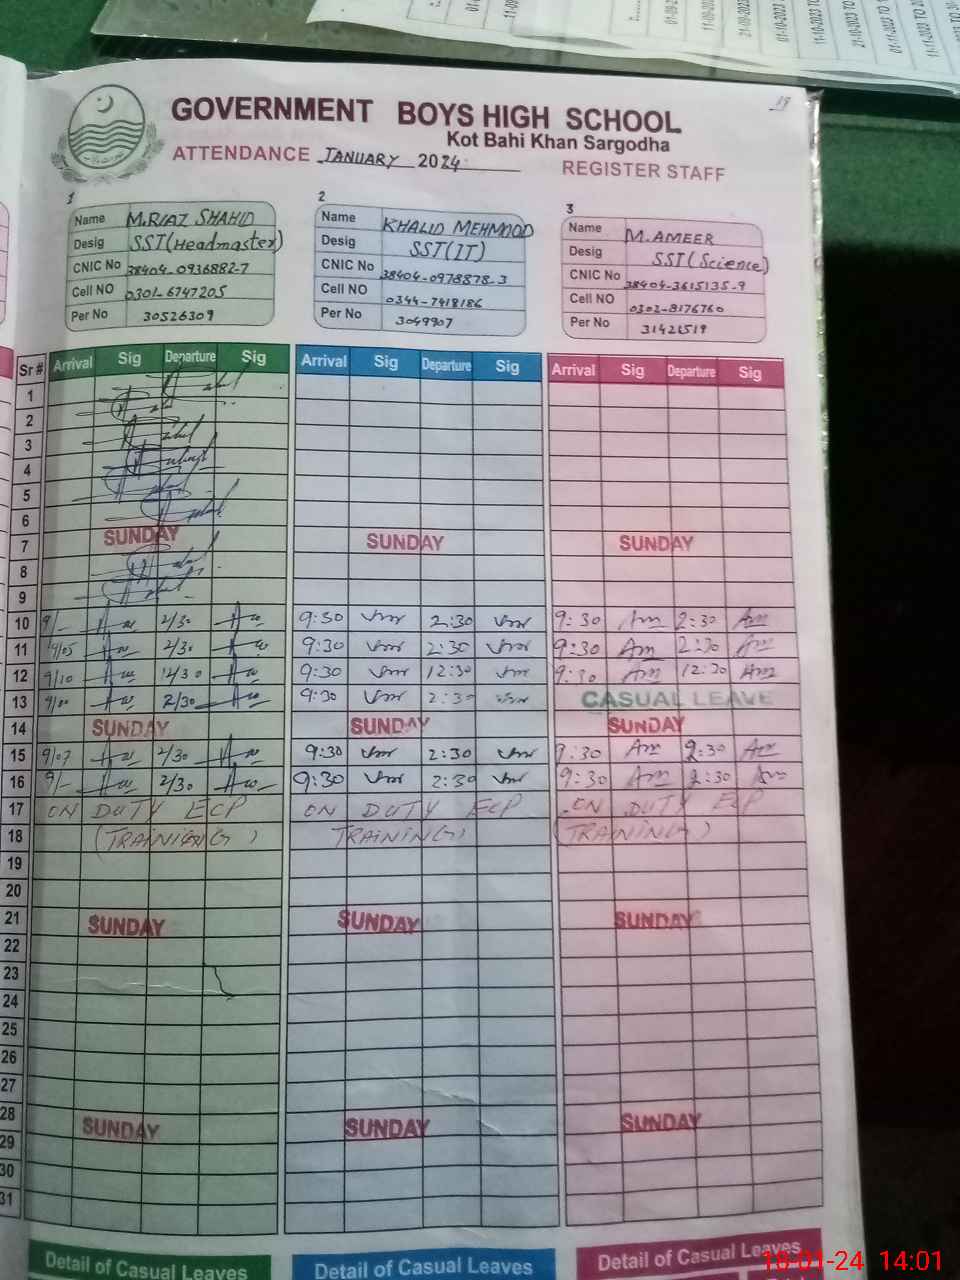 01-11-2023 TO
11-11-2023 TO
19
GOVERNMENT BOYS HIGH SCHOOL
Kot Bahi Khan Sargodha
ATTENDANCE JANUARY 2024
REGISTER STAFF
1
Name M.RIAZ SHAHID
Desig SST(Headmaster)
CNIC No 38404-0936882-7
Cell NO 0301-6747205
Per No 30526309
2
Name KHALID MEHMOOD
Desig SST(IT)
CNIC No 38404-0978878-3
Cell NO 0344-7418186
Per No 3049907
3
Name M.AMEER
Desig SST(Science)
CNIC No 38404-3615135-9
Cell NO 0302-8176760
Per No
Sr # Arrival Sig Departure Sig Arrival Sig Departure Sig Arrival Sig Departure Sig
1
2
3
4
5
6
7 SUNDAY SUNDAY SUNDAY
8
9
10 9/- 2/30 9:30 2:30 9:30 Am 2:30 Am
11 9/05 2/30 9:30 2:30 9:30 Am 2:30 Am
12 9/10 9:30 12:30 9:30 Am 12:30 Am
13 2/30 9:30 2:30 CASUAL LEAVE
14 SUNDAY SUNDAY SUNDAY
15 9/07 2/30 9:30 2:30 9:30 Am 2:30 Am
16 9/- 2/30 9:30 2:30 9:30 Am 2:30 Am
17 ON DUTY ECP ON DUTY ECP ON DUTY ECP
18 (TRAINING) TRAINING) (TRAINING)
19
20
21 SUNDAY SUNDAY SUNDAY
22
23
24
25
26
27
28 SUNDAY SUNDAY SUNDAY
29
30
31
Detail of Casual Leaves Detail of Casual Leaves Detail of Casual Leaves
18-01-24 14:01